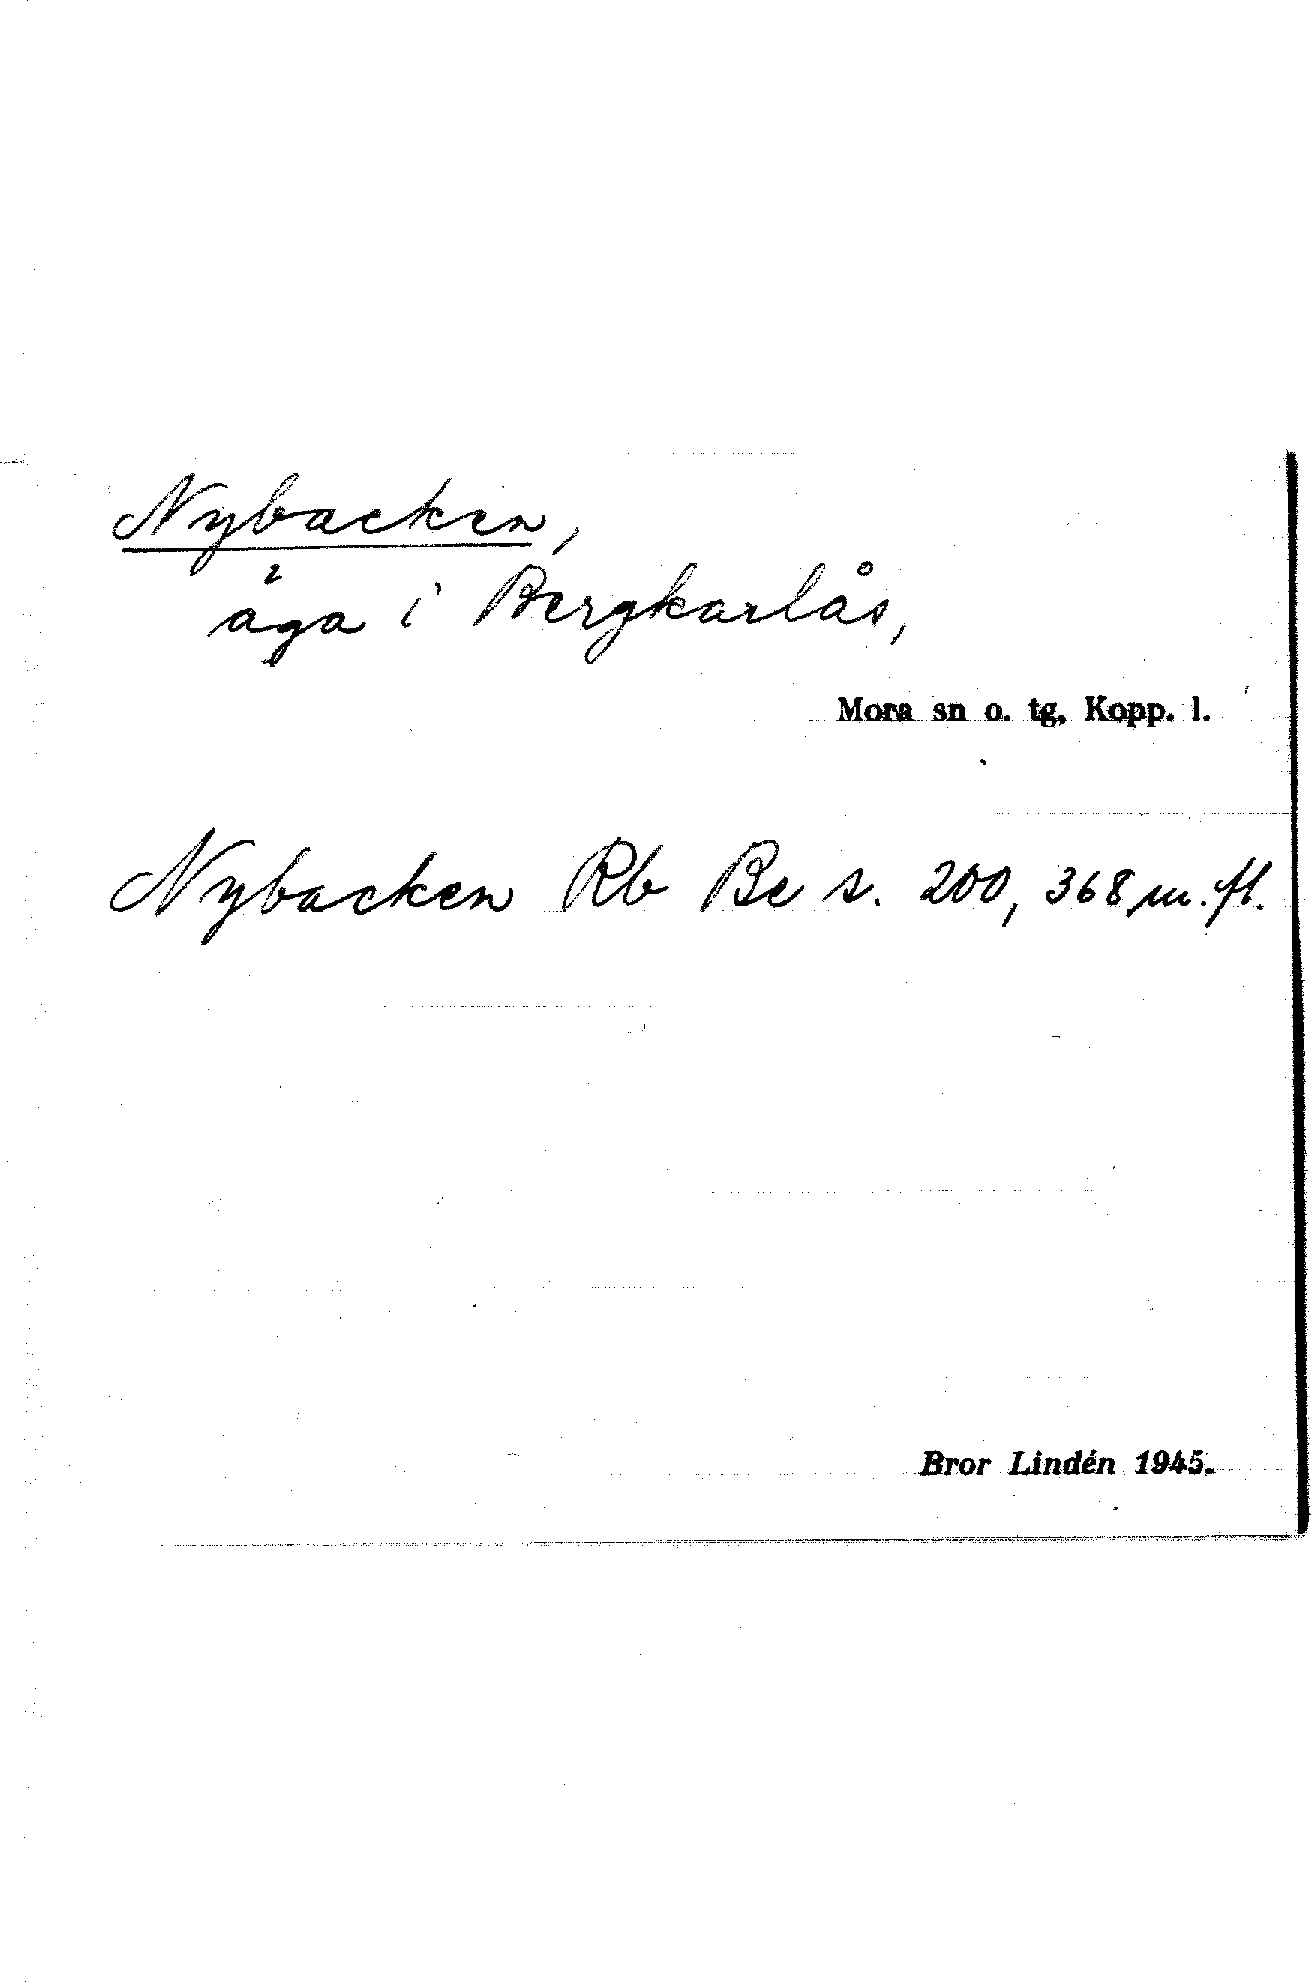 Nybacken,
äga i Bergkarlås,
Mora sn o. tg, Kopp. l.
Nybacken Rb Be s. 200, 368 m. fl.
Bror Lindén 1945.